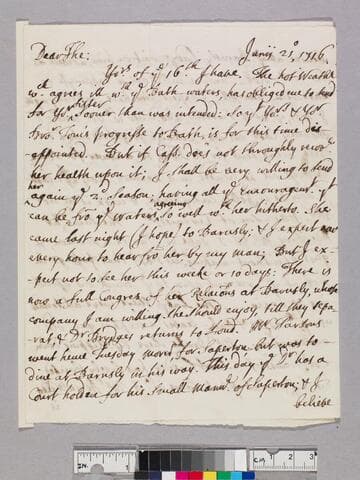 Dear The:
Junij 21o, 1716.
Yors of ye 16.th I have. The hot Weather
wch agrees ill wth ye Bath waters, has obliged me to send
for Yor Sister Sooner than was intended: So yt Yors & Yor
Bror Tom's progresse to Bath, is for this time dis-
-appointed. But if Cass. does not throughly recover
her health upon it; I shall be very willing to send
her again ye 2d Season, having all ye Encouragemt. yt
can be fro ye waters agreeing so well wth her hitherto. She
came last night (I hope) to Barnsly: & I expect now
every hour to hear fro her by my man; But I ex-
pect not to see her this weeke or 10 days: There is
now a full Congres of her Relacions at Barnsly, whose
company I am willing She should enjoy, till they sepa-
rat, & Dr. Brydges returns to Lond. Mr. Parsons
went hence Tuesday morn. for Saperton, but was to
dine at Barnsly in his way. This day ye Dr has a
Court holden for his Small Mannr. of Saperton; & I
beliebe
IN. 1 CM 1 2